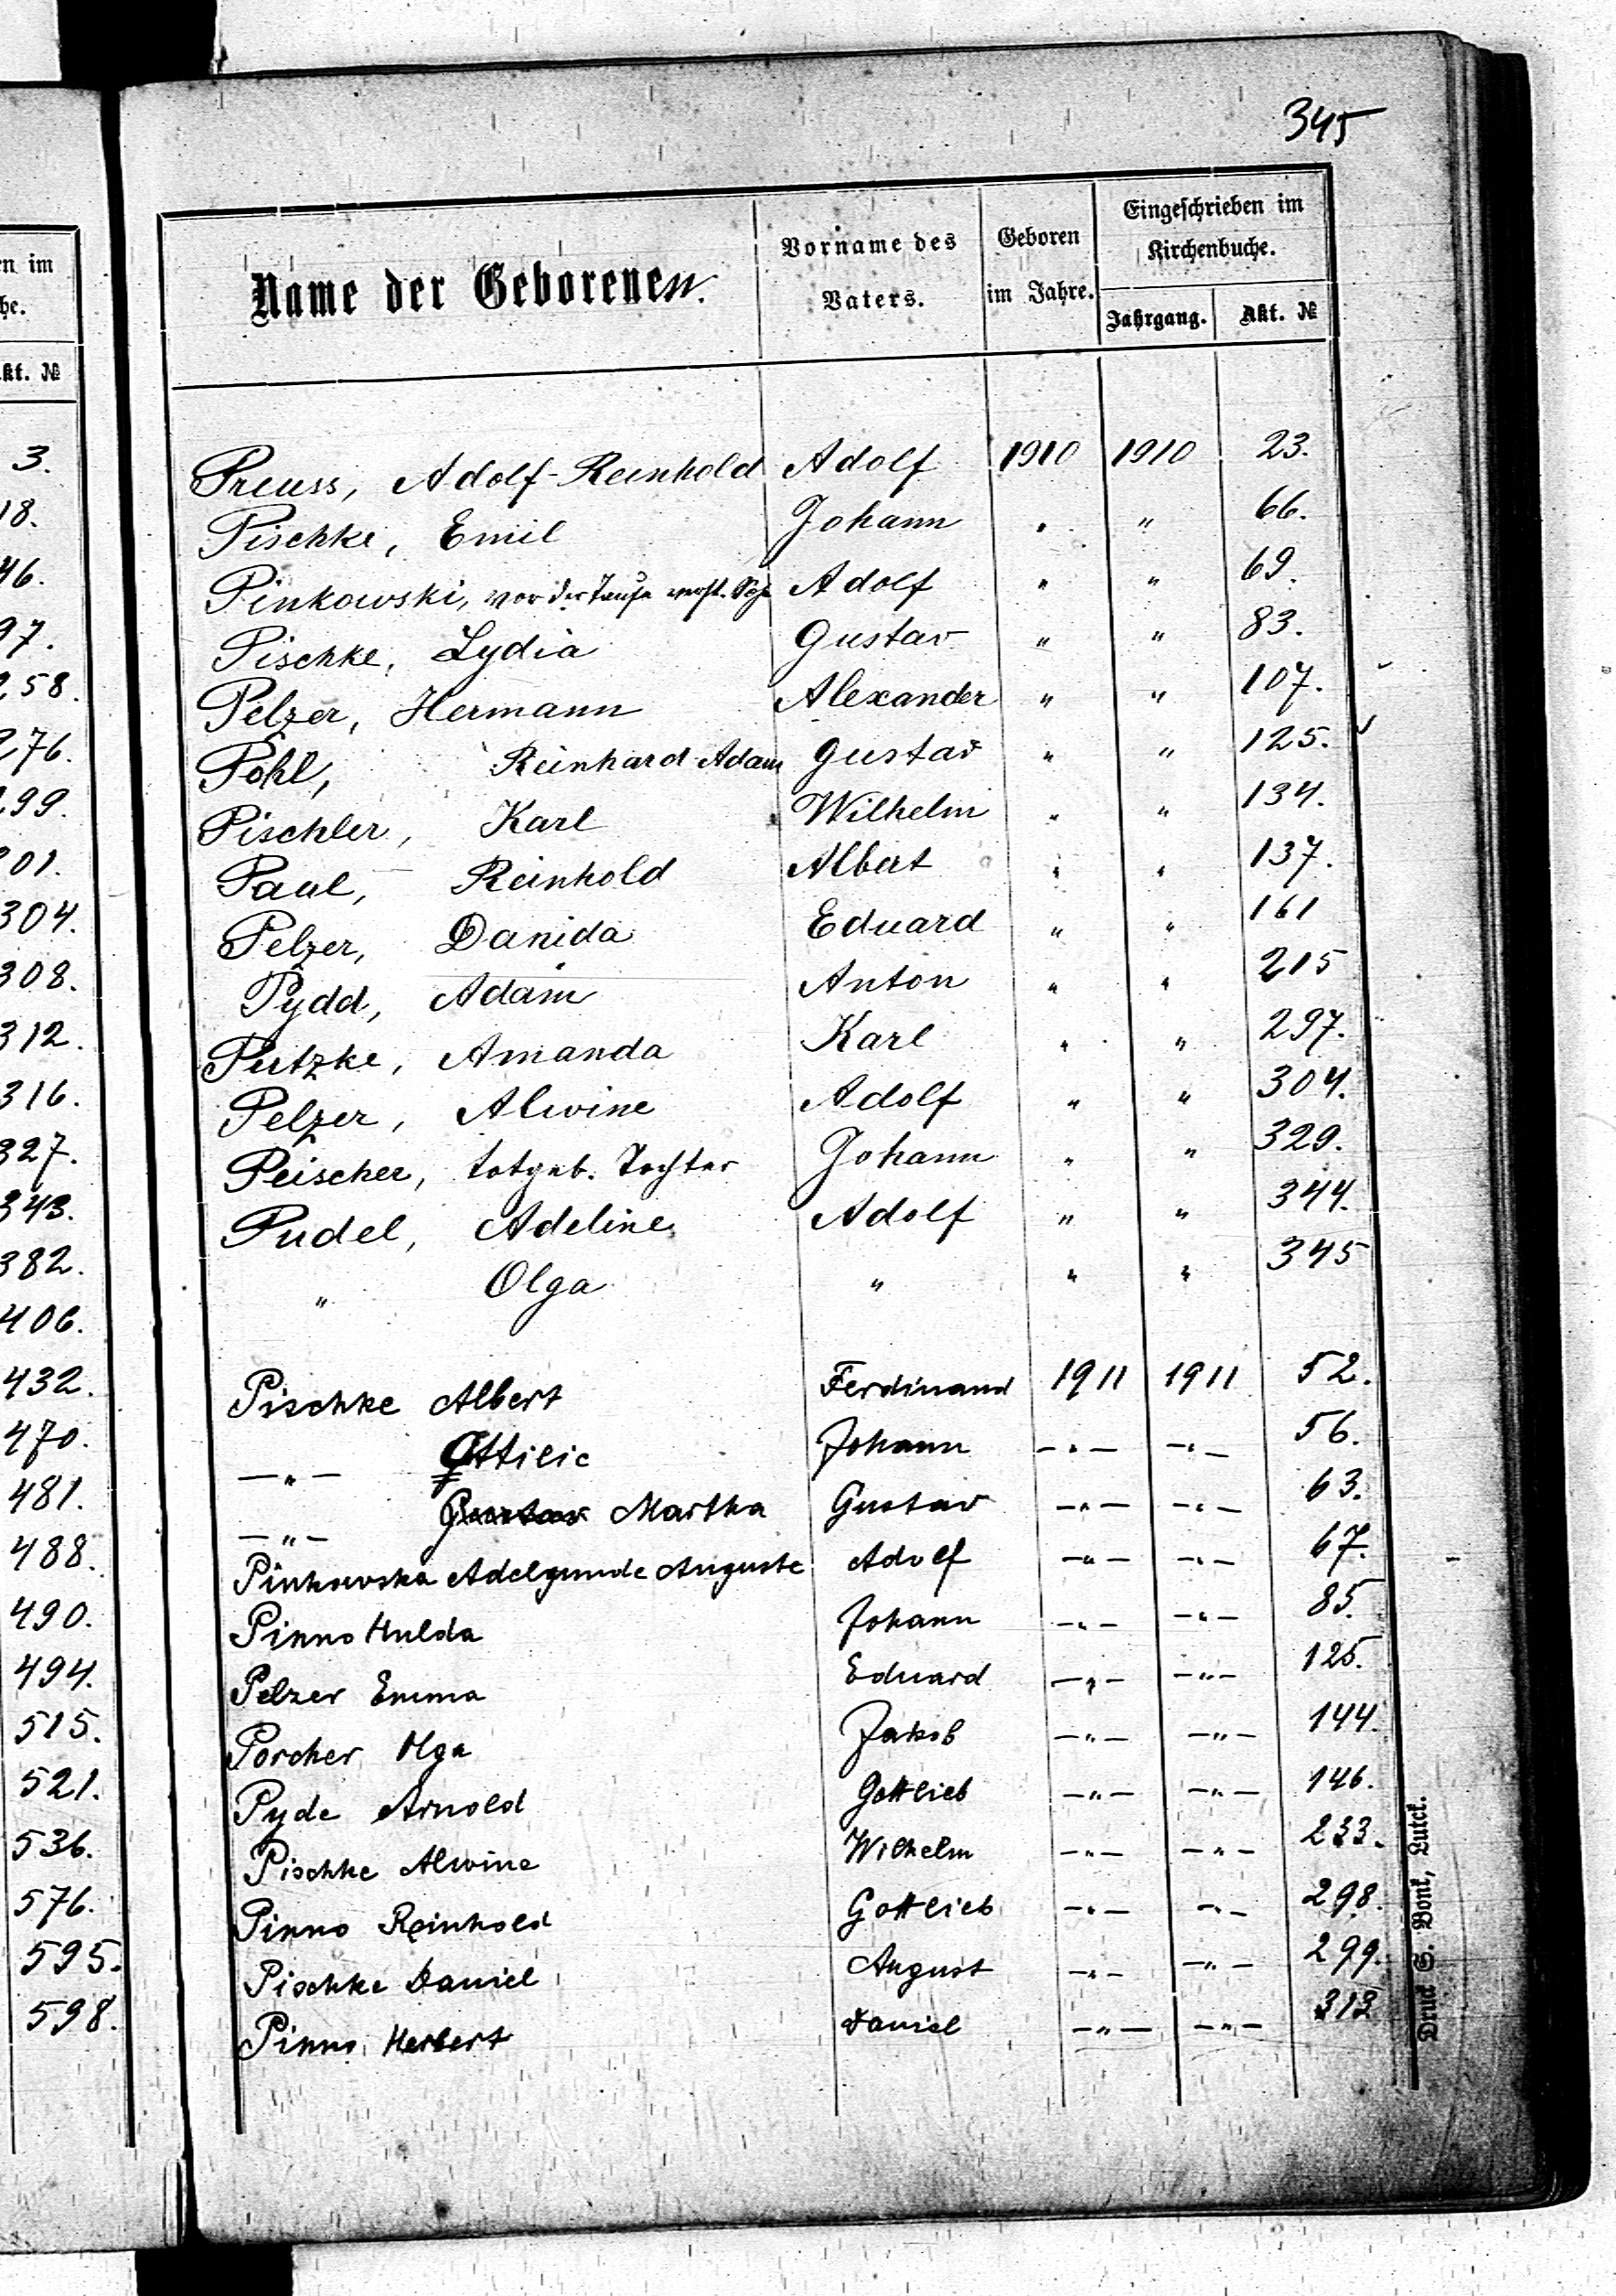 345
en im
he.
kt. №
3.
18.
46.
97.
258.
276.
299.
301.
304.
308.
312.
316.
327.
343.
382.
406.
432.
470.
481.
488.
490.
494.
515.
521.
536.
576.
595.
598.
Name der Geborenen. Vorname des Vaters. Geboren im Jahre. Eingeschrieben im Kirchenbuche.
Jahrgang. Akt. №
Preuss, Adolf-Reinhold Adolf 1910 1910 23.
Pischke, Emil Johann " " 66.
Pinkowski, vor der Taufe verst. Adolf " " 69.
Pischke, Lydia Gustav " " 83.
Pelzer, Hermann Alexander " " 107.
Pohl, Reinhard-Adam Gustav " " 125.
Pischler, Karl Wilhelm " " 134.
Paul, Reinhold Albert " " 137.
Pelzer, Danida Eduard " " 161
Pydd, Adam Anton " " 215
Putzke, Amanda Karl " " 297.
Pelzer, Alwine Adolf " " 304.
Peischer, totgeb. Tochter Johann " " 329.
Pudel, Adeline Adolf " " 344.
" Olga " " " 345
Pischke Albert Ferdinand 1911 1911 52.
—"— Ottilie Johann —"— —"— 56.
—"— Gustav Martha Gustav —"— —"— 63.
Pinkowska Adelgunde Auguste Adolf —"— —"— 67.
Pinno Hulda Johann —"— —"— 85.
Pelzer Emma Eduard —"— —"— 125.
Porcher Olga Jakob —"— —"— 144.
Pyde Arnold Gottlieb —"— —"— 146.
Pischke Alwine Wilhelm —"— —"— 233.
Pinno Reinhold Gottlieb —"— —"— 298.
Pischke Daniel August —"— —"— 299.
Pinno Herbert Daniel —"— —"— 313
Druck S. Bonk, Lutck.